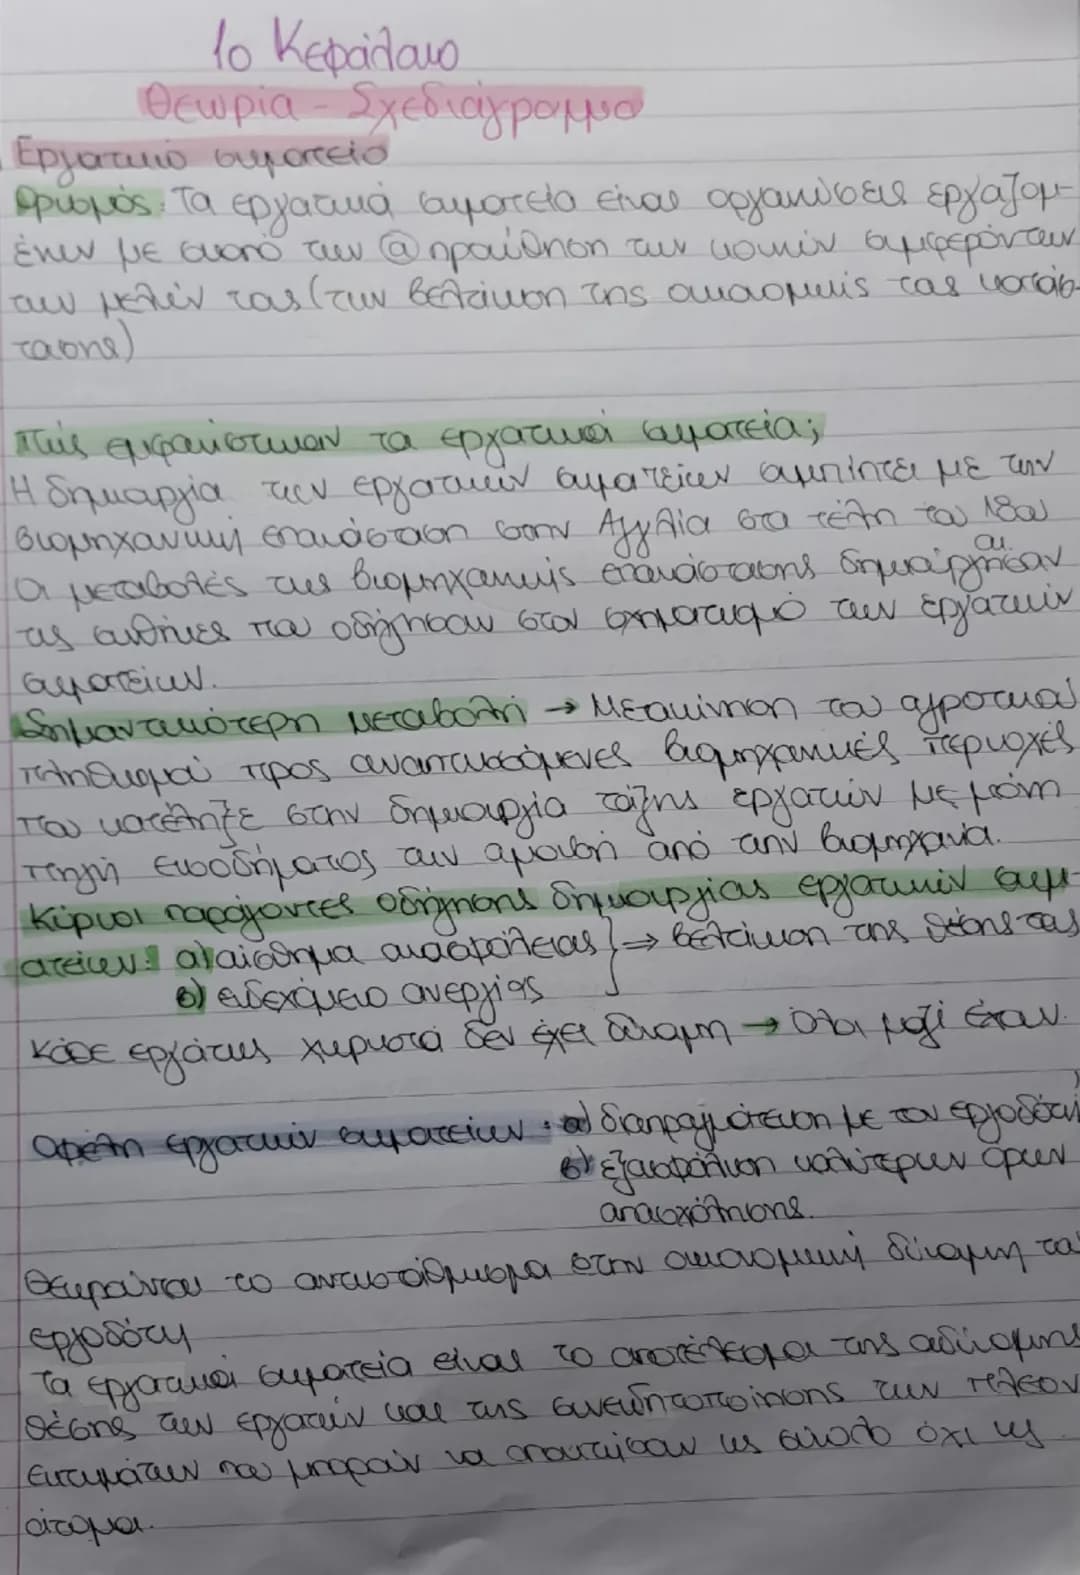 1ο Κεφάλαιο
Θεωρία - Σχεδιάγραμμα
Εργατικό σωματείο
Ορισμός: Τα εργατικά σωματεία είναι οργανώσεις εργαζομ-
ένων με σκοπό την @ προώθηση των κοινών συμφερόντων
των μελών τους (την βελτίωση της οικονομικής τους κατάσ-
τασης)
Πώς εμφανίστηκαν τα εργατικά σωματεία;
Η δημιουργία των εργατικών σωματείων συμπίπτει με την
βιομηχανική επανάσταση στην Αγγλία στα τέλη του 18ου
αι.
Οι μεταβολές της βιομηχανικής επανάστασης δημιούργησαν
τις συνθήκες που οδήγησαν στον σχηματισμό των εργατικών
σωματείων.
Σημαντικότερη μεταβολή → Μετακίνηση του αγροτικού
πληθυσμού προς αναπτυσσόμενες βιομηχανικές περιοχές
που κατέληξε στην δημιουργία τάξης εργατών με μόνη
πηγή εισοδήματος την αμοιβή από την βιομηχανία.
Κύριοι παράγοντες οδήγησης δημιουργίας εργατικών σωμ-
ατείων: α) αίσθημα ανασφάλειας } ⇒ βελτίωση της θέσης τους
β) ενδεχόμενο ανεργίας
Κάθε εργάτης χωριστά δεν έχει δύναμη → όλοι μαζί έχουν.
Οφέλη εργατικών σωματείων: α) διαπραγμάτευση με τον εργοδότη
β) εξασφάλιση καλύτερων όρων
απασχόλησης.
Θεωρούνται το αντιστάθμισμα στην οικονομική δύναμη του
εργοδότη
Τα εργατικά σωματεία είναι το αποτέλεσμα της αδύναμης
θέσης των εργατών και της συνειδητοποίησης των πλεον
εκτημάτων που μπορούν να αποκτήσουν ως σύνολο όχι ως
άτομα.